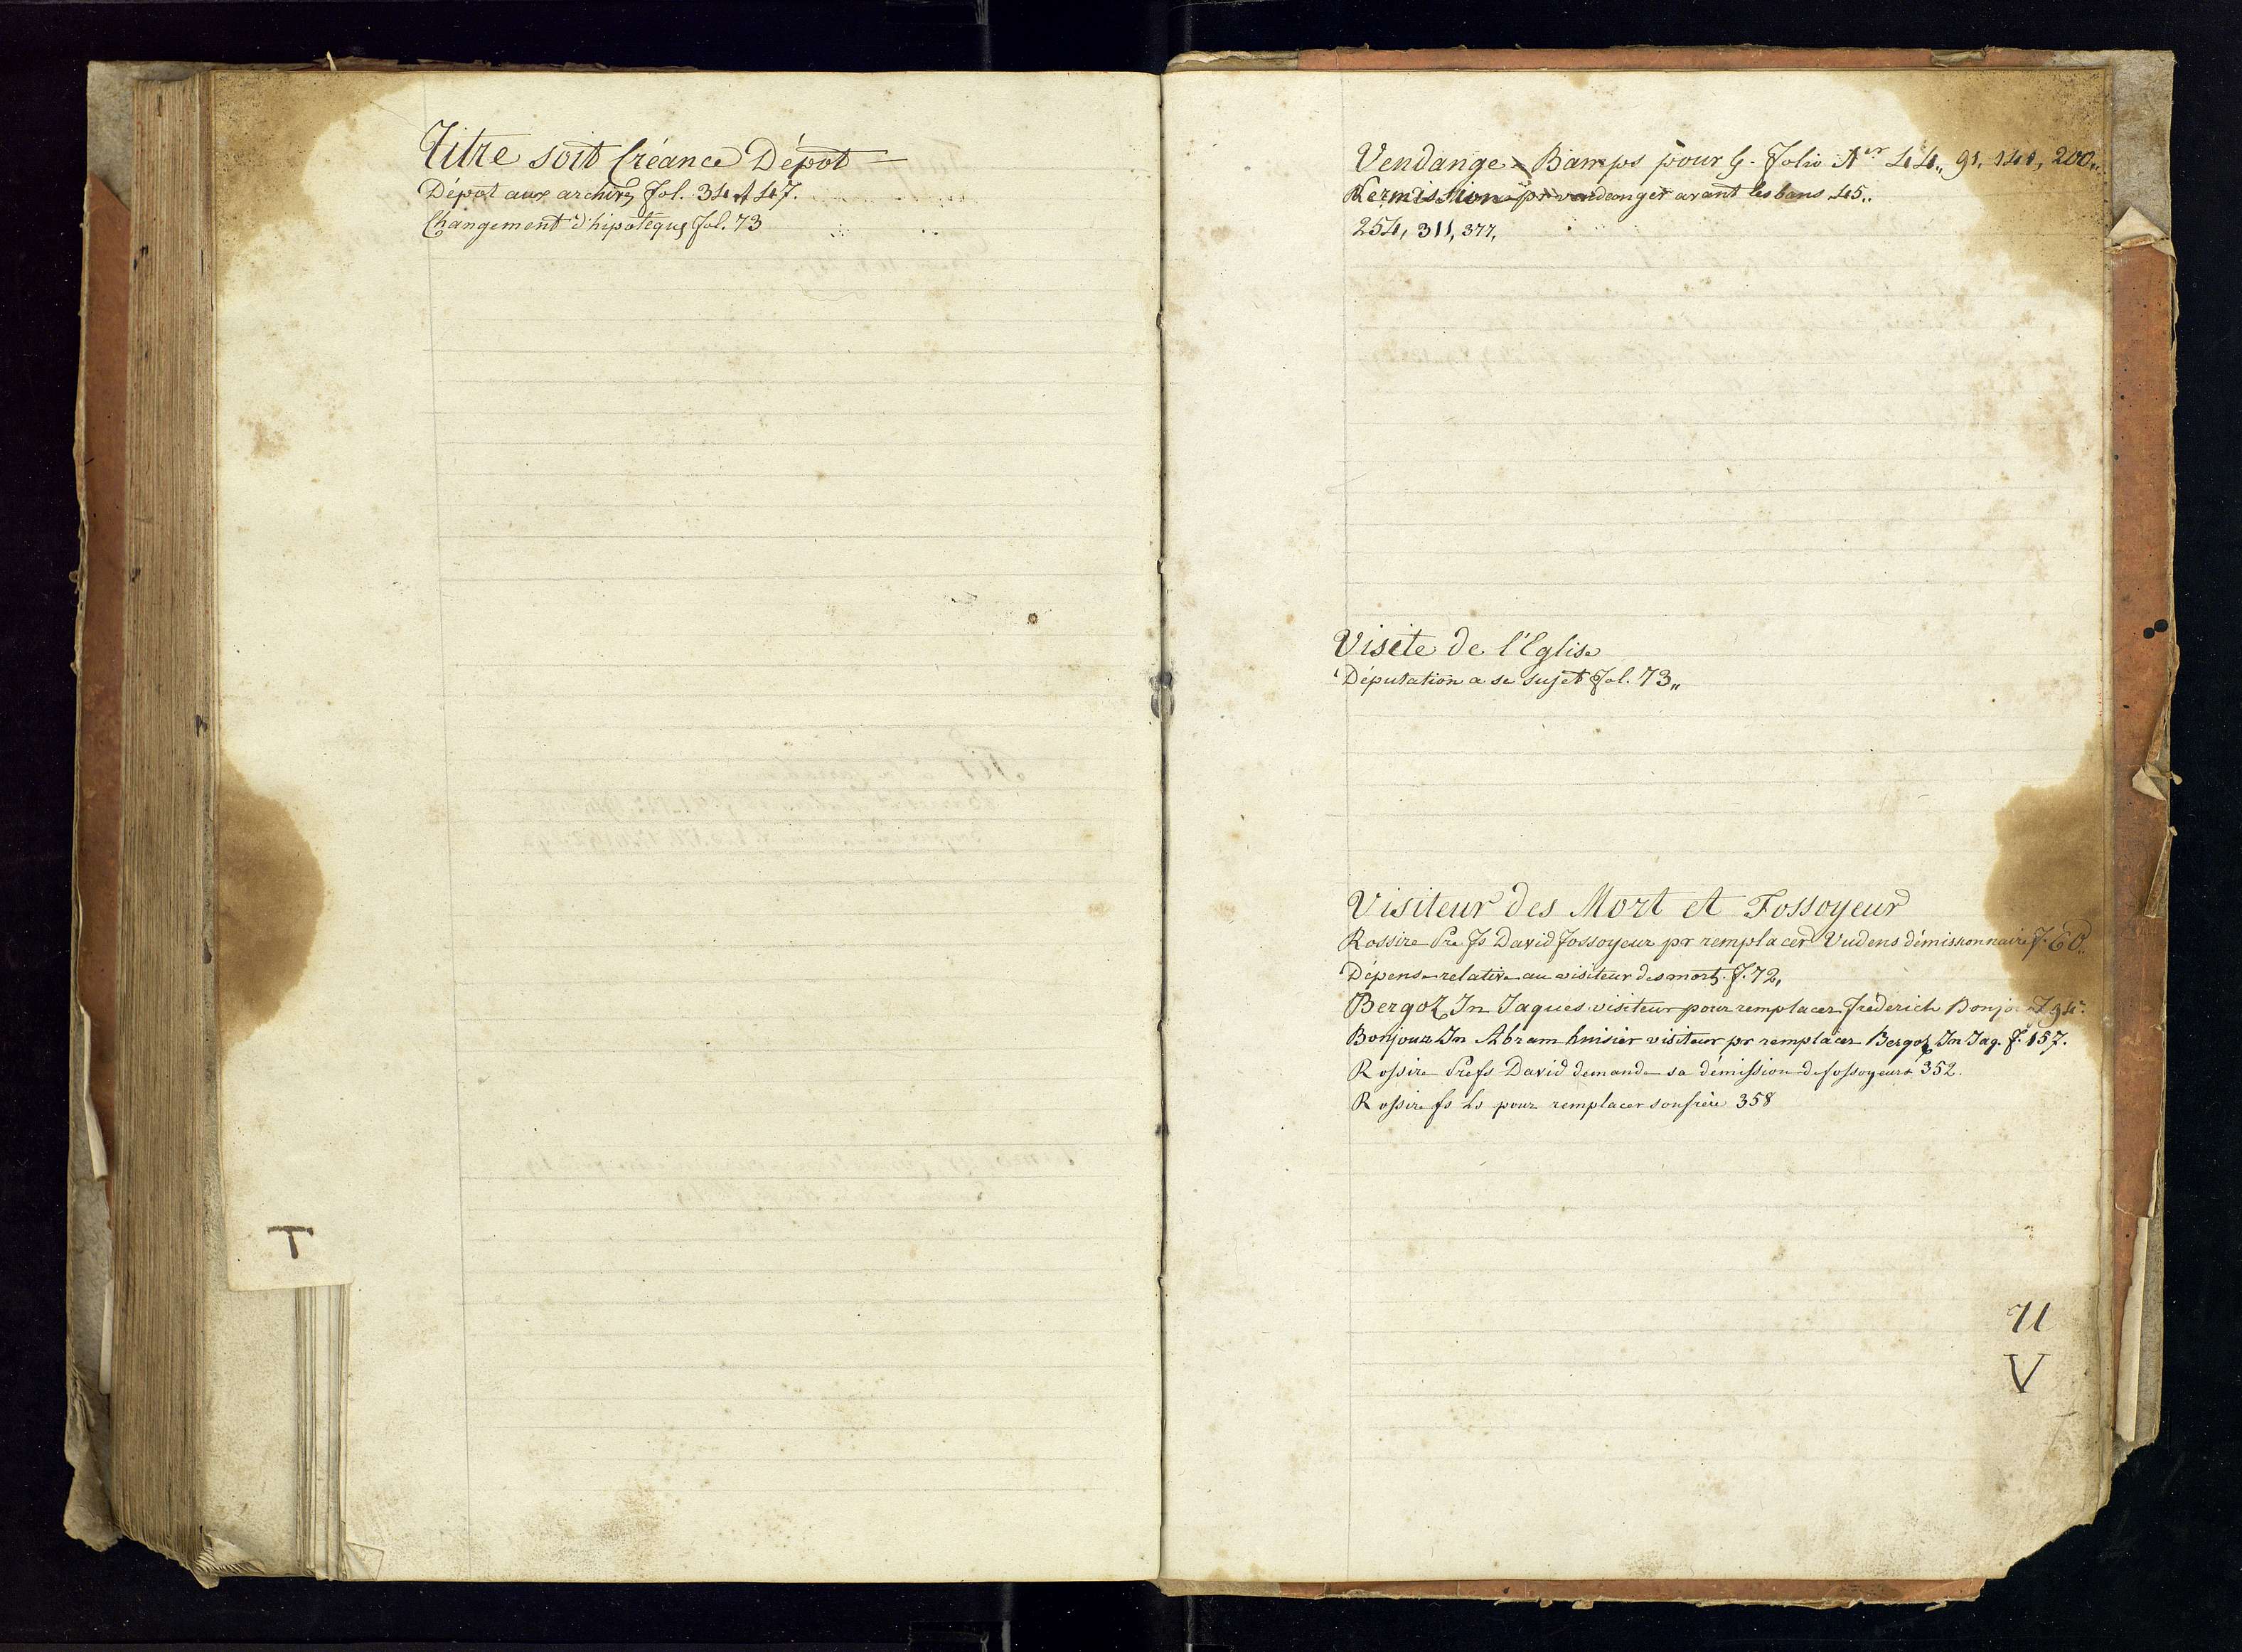 Titre soit Créance Dépot
Dépot aux archives fol. 34 et 47.
Changement d'hipoteque fol. 73
T
Vendange Bamps pour Folio 44,, 91, 141, 200,,
Permission pr vendanger avant les bans 45,,
254, 311, 377,
Visite de l'Eglise
Députation a se sujet Fol. 73,,
Visiteur des Mort et Fossoyeur
Rossire Pre Fs David fossoyeur pr remplacer Vudens démissionnaire f. 60,,
Dépense relative au visiteur des morts f. 72,
Bergoz Jn Jaques visiteur pour remplacer Fréderich Bonjour f 94
Bonjour Jn Abram huisier visiteur pr remplacer Bergoz Jn Jaq. f. 157.
Rossire Pre fs David demande sa démission de fossoyeur 352.
Rossire fs Ls pour remplacer son frère 358
U
V